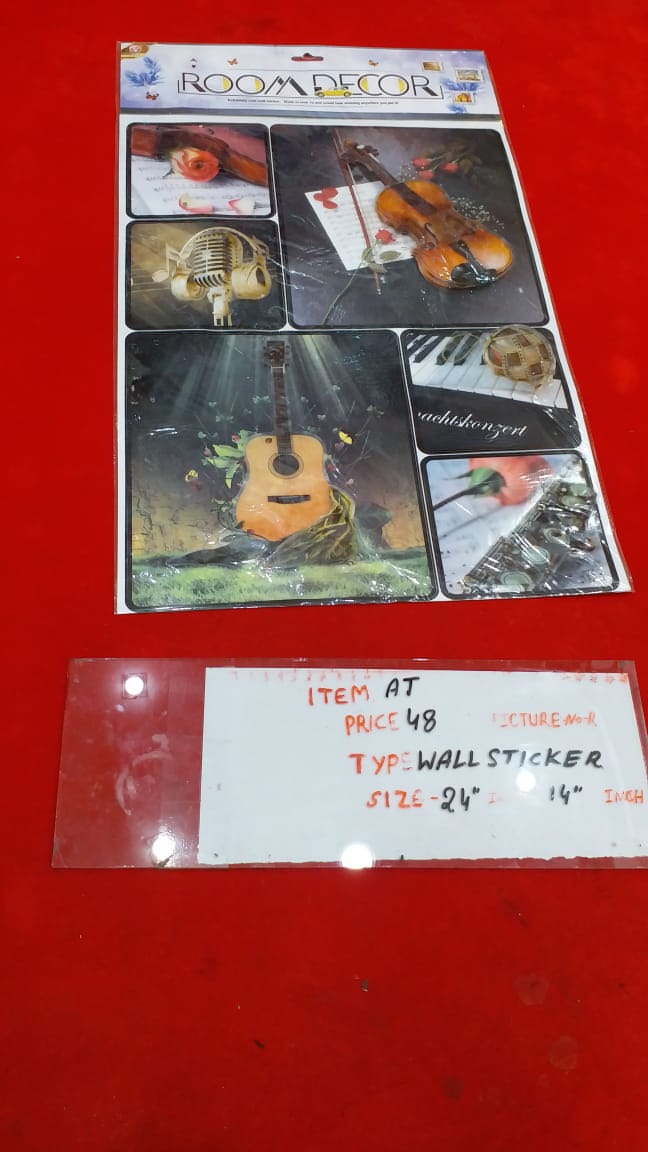 ROOM DECOR
achtskonzert
ITEM AT
PRICE 48 PICTURE-NO-R
TYPE WALL STICKER
SIZE-24" 14" INCH